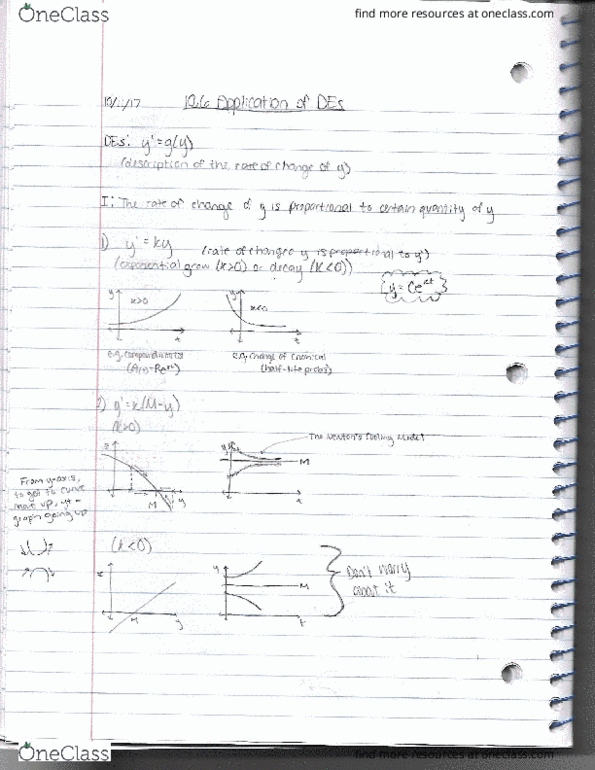 OneClass
find more resources at oneclass.com
10.6 Application of DEs
DEs: y' = g(y)
(description of the rate of change of y)
I: The rate of change of y is proportional to certain quantity of y
1) y' = ky (rate of change y is proportional to y)
(exponential grow (k>0) or decay (k<0))
y = Ce^kt
y k>0 t
y k<0 t
e.g. compound
e.g. change of chemical
(half-life probs)
2) y' = k(M-y)
(k>0)
The Newton's Cooling Model
M y
M t
From y-axis,
to get to curve
move up, y+ =
graph going up
(k<0)
M y
y M t
Don't worry
about it
OneClass
find more resources at oneclass.com